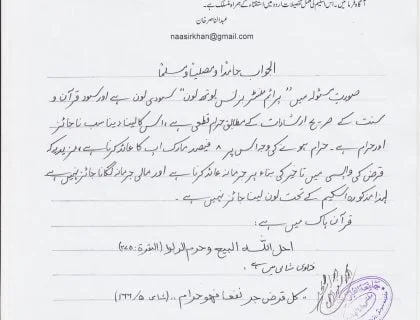 آگاہ فرمائیں۔ اس اسکیم کی مکمل تفصیلات اردو میں استفتاء کے ہمراہ منسلک ہے۔
عبدالناصر خان
naasirkhan@gmail.com
الجواب حامدا و مصلیا و مسلما
صورت مسئولہ میں "پرائم منسٹر بزنس یوتھ لون" سودی لون ہے اور سود قرآن و
سنت کے صریح ارشادات کے مطابق حرام قطعی ہے، اس کا لینا دینا سب ناجائز
اور حرام ہے۔ حرام ہونے کی وجہ اس پر ۸ فیصد مارک اپ کا عائد کرنا ہے،
قرض کی واپسی میں تاخیر کی بناء پر جرمانہ عائد کرنا ہے اور مالی جرمانہ لگانا جائز نہیں ہے
لہذا مذکورہ اسکیم کے تحت لون لینا جائز نہیں ہے۔
قرآن پاک میں ہے:
احل اللہ البیع وحرم الربوا (البقرة: ۲۷۵)
فتاوی شامی میں ہے
"کل قرض جر نفعا فھو حرام" (شامی ۵/۱۶۶)